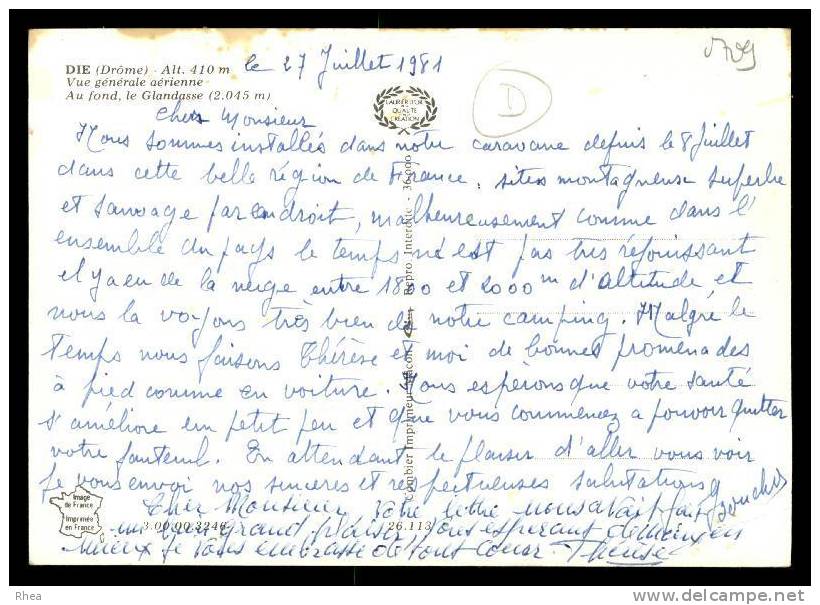 DIE (Drôme) - Alt. 410 m
le 27 Juillet 1981
Vue générale aérienne
Au fond, le Glandasse (2.045 m)
LAURIER D'OR
DE LA
QUALITÉ
CRÉATION
D
Cher Monsieur
Nous sommes installés dans notre caravane depuis le 8 Juillet
dans cette belle région de France, sites montagneux superbe
et sauvage par endroit, malheureusement comme dans l'
ensemble du pays le temps n'est pas très réjouissant
il y a eu de la neige entre 1800 et 2000m d'altitude, et
nous la voyons très bien de notre camping. Malgré le
temps nous faisons Thérèse et moi de bonnes promenades
à pied comme en voiture. Nous espèrons que votre santé
s'améliore un petit peu et que vous commencez a pouvoir quitter
votre fauteuil. En attendant le plaisir d'aller vous voir
Je vous envoi nos sincères et respectueuses salutations
Cher Monsieur votre lettre nous avait fait
un bien grand plaisir vous esperant de mieux en
mieux je vous embrasse de tout coeur. Thérèse
Combier Imprimeur Mâcon
Repro. Interdite - 30.000
Image
de France
Imprimée
en France
3.00.00.3246
26.113
Rhea
www.delcampe.net